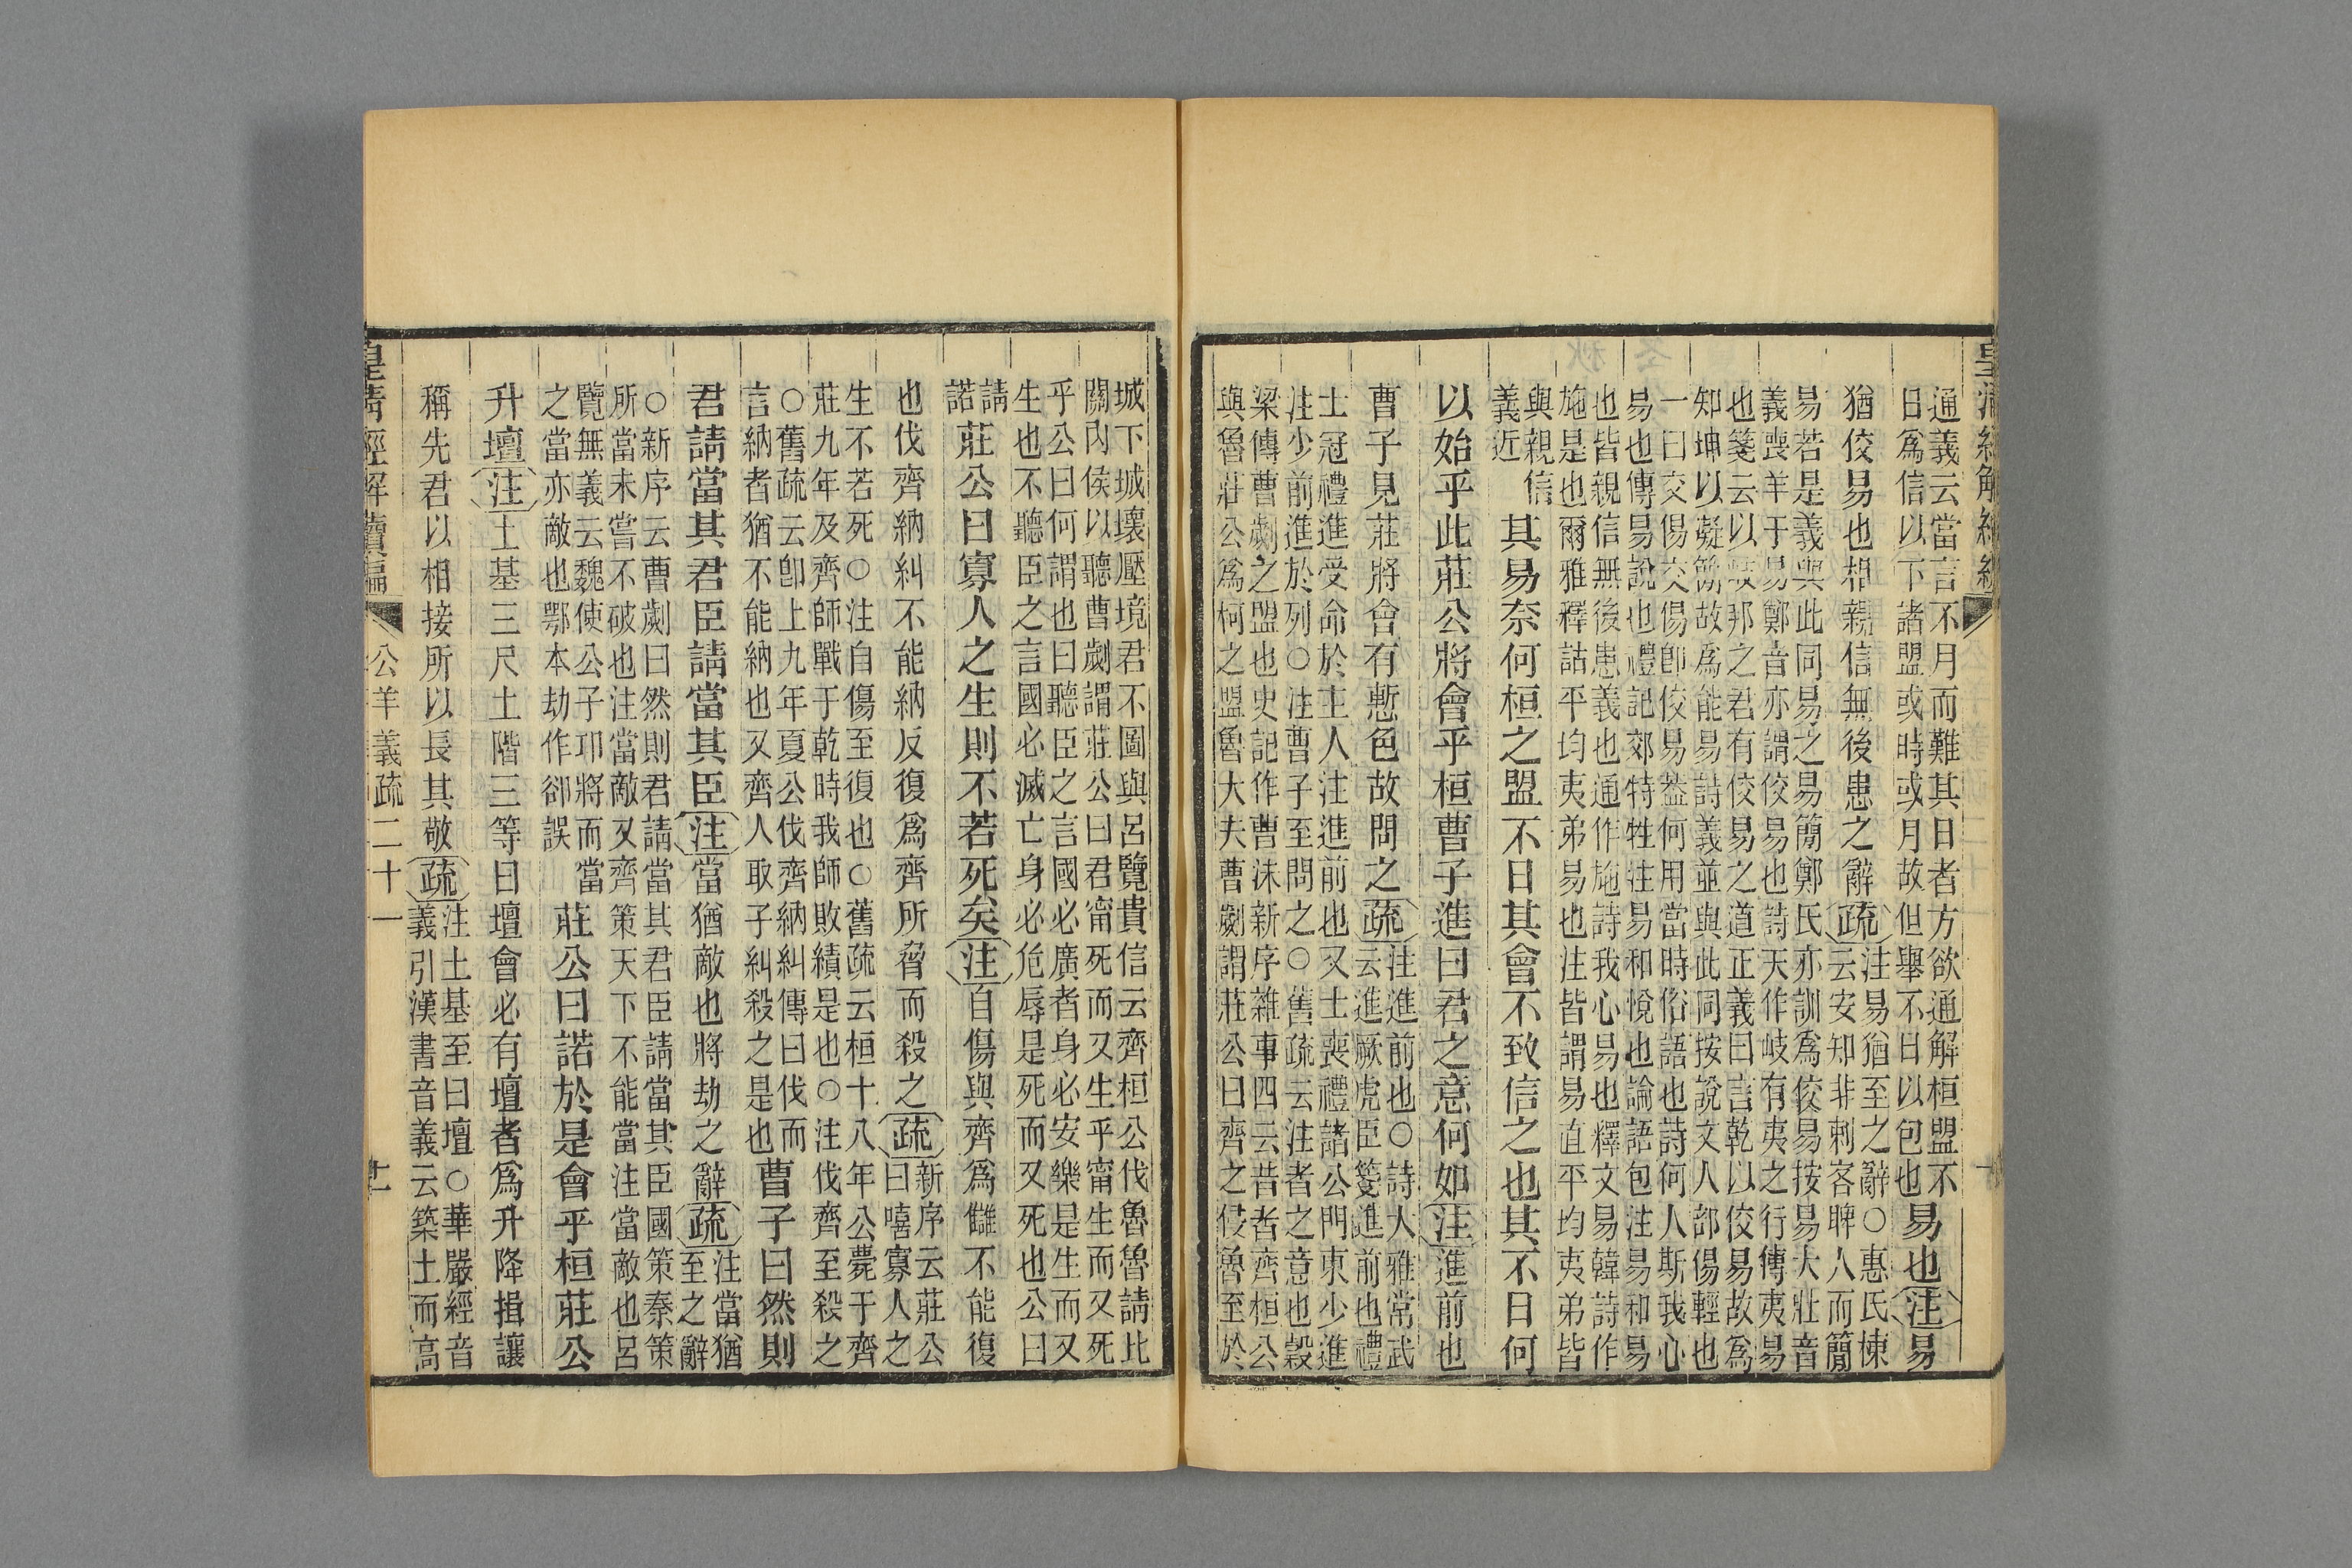 皇清經解續編
通義云當言不月而難其日者方欲通解桓盟不
日爲信以下諸盟或時或月故但舉不日以包也
易也注易
猶佼易也相親信無後患之辭疏
注易猶至之辭○惠氏棟
云安知非刺客睥八而簡
易若是義與此同易之易簡鄭氏亦訓爲佼易按易大壯音
義喪羊于易鄭音亦謂佼易也詩天作岐有夷之行傳夷易
也箋云以岐邦之君有佼易之道正義曰言乾以佼易故爲
知坤以凝簡故爲能易詩義並與此同按說文人部傷輕也
一曰交傷交傷卽佼易葢何用當時俗語也詩何人斯我心
易也傳易說也禮記郊特牲注易和悅也論語包注易和易
也皆親信無後患義也通作施詩我心易也釋文易韓詩作
施是也爾雅釋詁平均夷弟易也注皆謂易直平均夷弟皆
與親信
義近
其易奈何桓之盟不日其會不致信之也其不日何
以始乎此莊公將會乎桓曹子進曰君之意何如注進前也
曹子見莊將會有慙色故問之疏
注進前也○詩大雅常武
云進厥虎臣箋進前也禮
士冠禮進受命於主人注進前也又士喪禮諸公門東少進
注少前進於列○注曹子至問之○舊疏云注者之意也穀
梁傳曹劌之盟也史記作曹沫新序雜事四云昔者齊桓公
與魯莊公爲柯之盟魯大夫曹劌謂莊公曰齊之侵魯至於
城下城壞壓境君不圖與呂覽貴信云齊桓公伐魯魯請比
關內侯以聽曹劌謂莊公曰君甯死而又生乎甯生而又死
乎公曰何謂也曰聽臣之言國必廣者身必安樂是生而又
生也不聽臣之言國必滅亡身必危辱是死而又死也公曰
請
諾
莊公曰寡人之生則不若死矣注自傷與齊爲讎不能復
也伐齊納糾不能納反復爲齊所脅而殺之疏
新序云莊公
曰嘻寡人之
生不若死○注自傷至復也○舊疏云桓十八年公薨于齊
莊九年及齊師戰于乾時我師敗績是也○注伐齊至殺之
○舊疏云卽上九年夏公伐齊納糾傳曰伐而
言納者猶不能納也又齊人取子糾殺之是也
曹子曰然則
君請當其君臣請當其臣注當猶敵也將劫之辭疏
注當猶
至之辭
○新序云曹劌曰然則君請當其君臣請當其臣國策秦策
所當未嘗不破也注當敵又齊策天下不能當注當敵也呂
覽無義云魏使公子卭將而當
之當亦敵也鄂本劫作卻誤
莊公曰諾於是會乎桓莊公
升壇注土基三尺土階三等曰壇會必有壇者爲升降揖讓
稱先君以相接所以長其敬疏
注土基至曰壇○華嚴經音
義引漢書音義云築土而高
皇清經解續編
公羊義疏二十一
十一